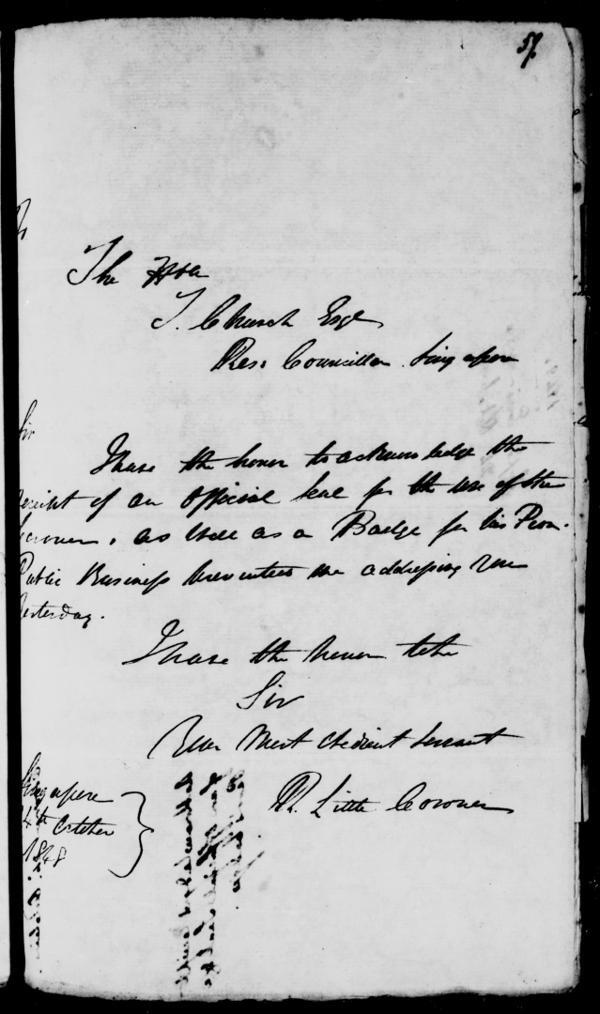 57.
To
The Honble
T. Church Esqe
Res: Councillor Singapore
Sir
I have the honor to acknowledge the
receipt of an Official Seal for the use of the
Coroner, as well as a Badge for his Peon.
Public Business prevented me addressing you
Yesterday.
I have the honor to be
Sir
Your Most Obedient Servant
R. Little Coroner
Singapore
4th October
1848